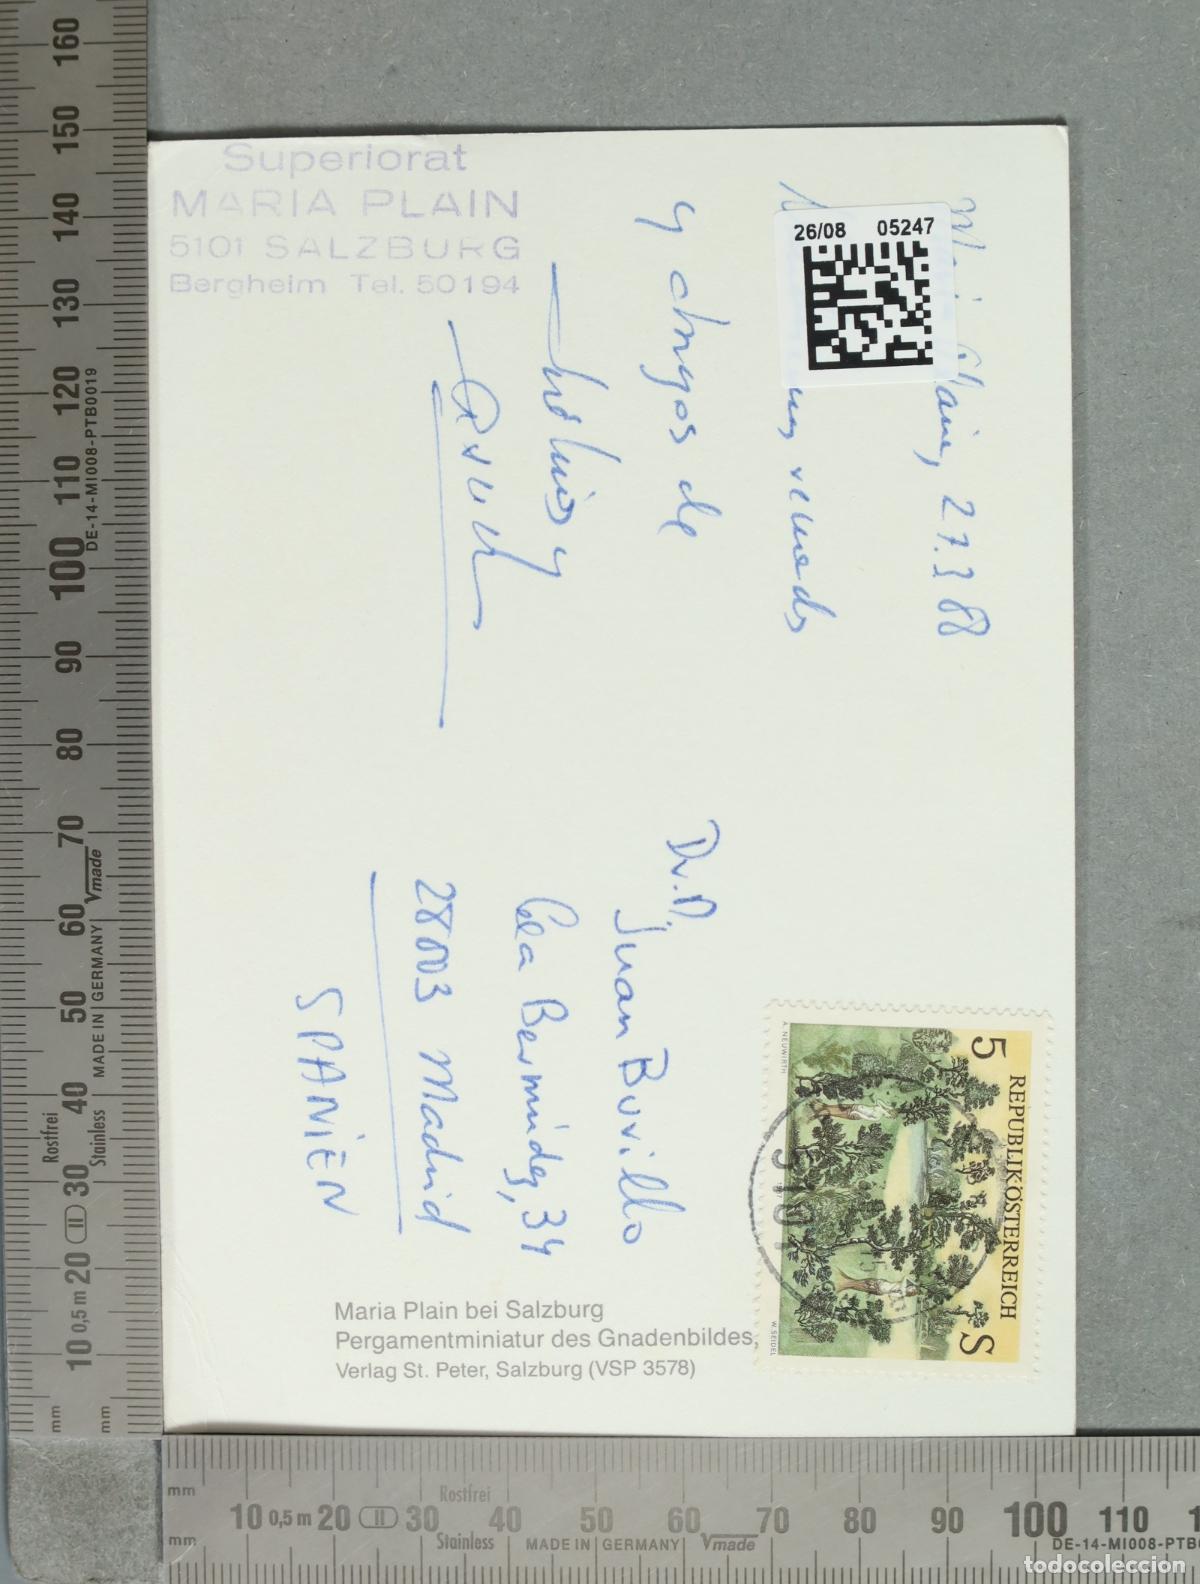 Superiorat
MARIA PLAIN
5101 SALZBURG
Bergheim Tel. 50194
26/08 05247
Plain, 27.3 88
y
de
y
Dr. D.
Juan Bovillo
Cea Bermúdez, 34
28003 Madrid
SPANIEN
REPUBLIK ÖSTERREICH
5 S
A. NEUWIRTH
W. SEIDEL
5101
Maria Plain bei Salzburg
Pergamentminiatur des Gnadenbildes,
Verlag St. Peter, Salzburg (VSP 3578)
160
150
140
130
120
110
100
90
80
70
60
50
40
30
20
10
DE-14-MI008-PTB0019
Vmade
MADE IN GERMANY
Rostfrei
Stainless
II
0,5 m
mm
mm
mm
mm
10 0,5 m 20 II 30 40 50 60 70 80 90 100 110
Rostfrei
Stainless
MADE IN GERMANY
Vmade
DE-14-MI008-PTB0
todocoleccion